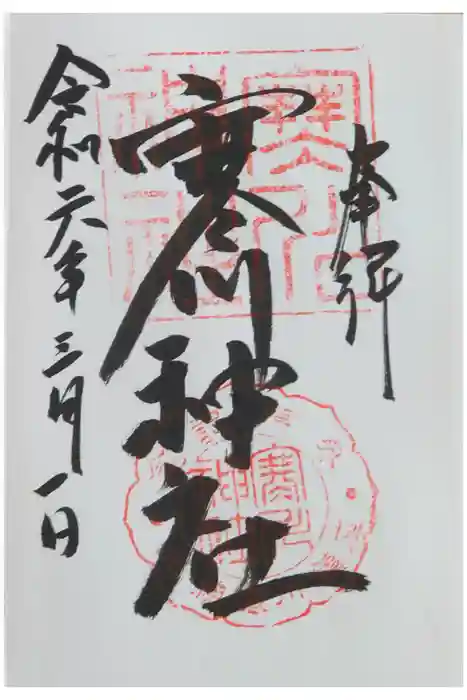 奉拝
寒川神社
令和六年三月一日
寒川
神社